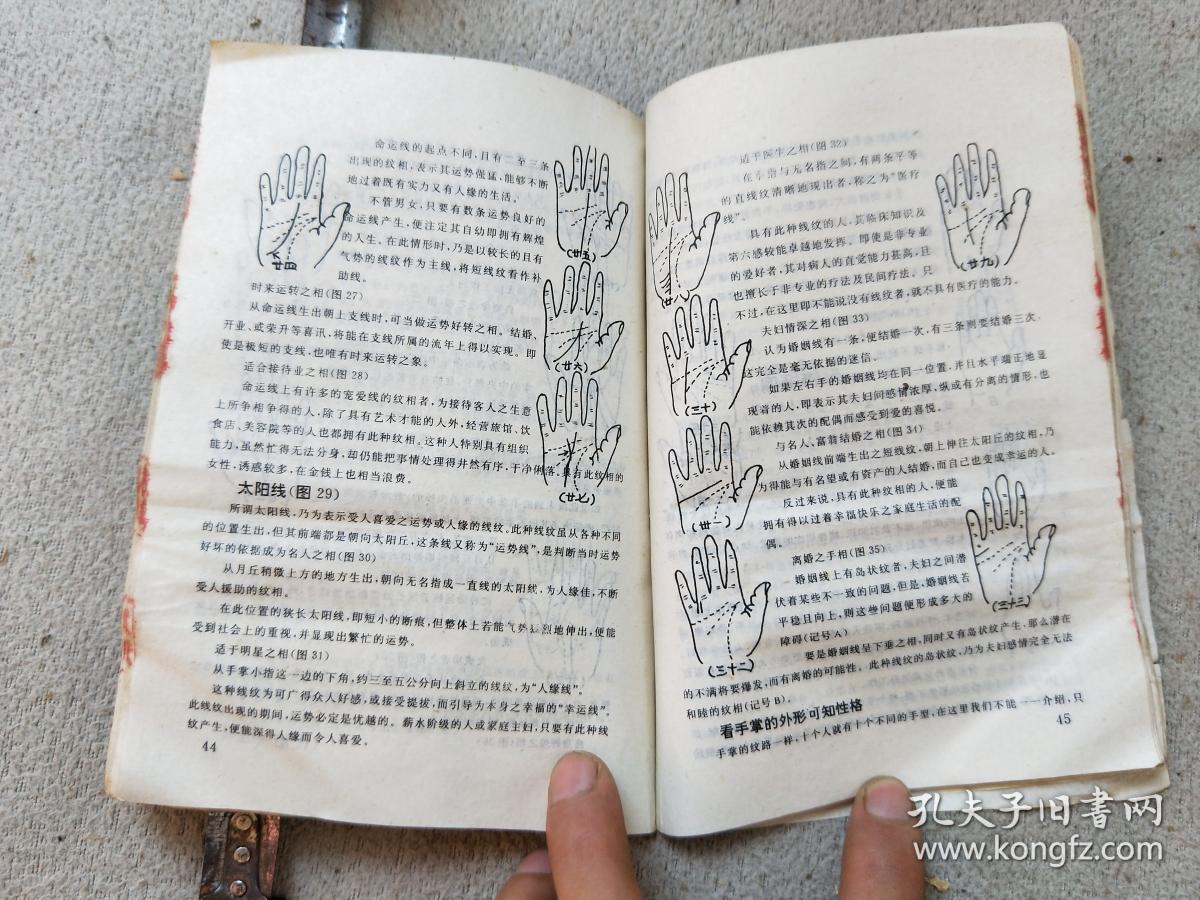 命运线的起点不同,且有二至三条
出现的纹相,表示其运势强猛,能够不断
地过着既有实力又有人缘的生活。
不管男女,只要有数条运势良好的
命运线产生,便注定其自幼即拥有辉煌
的人生。在此情形时,乃是以较长的且有
气势的线纹作为主线,将短线纹看作补
助线。
时来运转之相(图27)
从命运线生出朝上支线时,可当做运势好转之相。结婚、
开业、或荣升等喜讯,将能在支线所属的流年上得以实现。即
使是极短的支线,也唯有时来运转之象。
适合接待业之相(图28)
命运线上有许多的宠爱线的纹相者,为接待客人之生意
上所争相争得的人,除了具有艺术才能的人外,经营旅馆、饮
食店、美容院等的人也都拥有此种纹相。这种人特别具有组织
能力,虽然忙得无法分身,却仍能把事情处理得井然有序,干净俐落。具有此纹相的
女性,诱惑较多,在金钱上也相当浪费。
太阳线(图29)
所谓太阳线,乃为表示受人喜爱之运势或人缘的线纹。此种线纹虽从各种不同
的位置生出,但其前端都是朝向太阳丘,这条线又称为“运势线”,是判断当时运势
好坏的依据成为名人之相(图30)
从月丘稍微上方的地方生出,朝向无名指成一直线的太阳线,为人缘佳,不断
受人援助的纹相。
在此位置的狭长太阳线,即短小的断痕,但整体上若能气势猛烈地伸出,便能
受到社会上的重视,并显现出繁忙的运势。
适于明星之相(图31)
从手掌小指这一边的下角,约三至五公分向上斜立的线纹,为“人缘线”。
这种线纹为可广得众人好感,或接受提拔,而引导为本身之幸福的“幸运线”。
此线纹出现的期间,运势必定是优越的。薪水阶级的人或家庭主妇,只要有此种线
纹产生,便能深得人缘而令人喜爱。
44
廿四
(廿五)
(廿六)
(廿七)
适于医生之相(图32)
在小指与无名指之间,有两条平等
的直线纹清晰地现出者,称之为“医疗
线”。
具有此种线纹的人,其临床知识及
第六感较能卓越地发挥。即使是非专业
的爱好者,其对病人的直觉能力甚高,且
也擅长于非专业的疗法及民间疗法。只
不过,在这里即不能说没有线纹者,就不具有医疗的能力。
夫妇情深之相(图33)
认为婚姻线有一条,便结婚一次,有三条则要结婚三次,
这完全是毫无依据的迷信。
如果左右手的婚姻线均在同一位置,并且水平端正地显
现着的人,即表示其夫妇间感情浓厚,纵或有分离的情形,也
能依赖其次的配偶而感受到爱的喜悦。
与名人、富翁结婚之相(图34)
从婚姻线前端生出之短线纹,朝上伸往太阳丘的纹相,乃
为得能与有名望或有资产的人结婚,而自己也变成幸运的人。
反过来说,具有此种纹相的人,便能
拥有得以过着幸福快乐之家庭生活的配
偶。
离婚之手相(图35)
婚姻线上有岛状纹者,夫妇之间潜
伏着某些不一致的问题,但是,婚姻线若
平稳且向上,则这些问题便形成多大的
障碍(记号A)
要是婚姻线呈下垂之相,同时又有岛状纹产生,那么潜在
的不满将要爆发,而有离婚的可能性。此种线纹的岛状纹,乃为夫妇感情完全无法
和睦的纹相(记号B)。
看手掌的外形可知性格
手掌的纹路一样,十个人就有十个不同的手型,在这里我们不能一一介绍,只
45
廿八
(廿九)
(三十)
(卅一)
(三十二)
(三十三)
孔夫子旧书网
www.kongfz.com